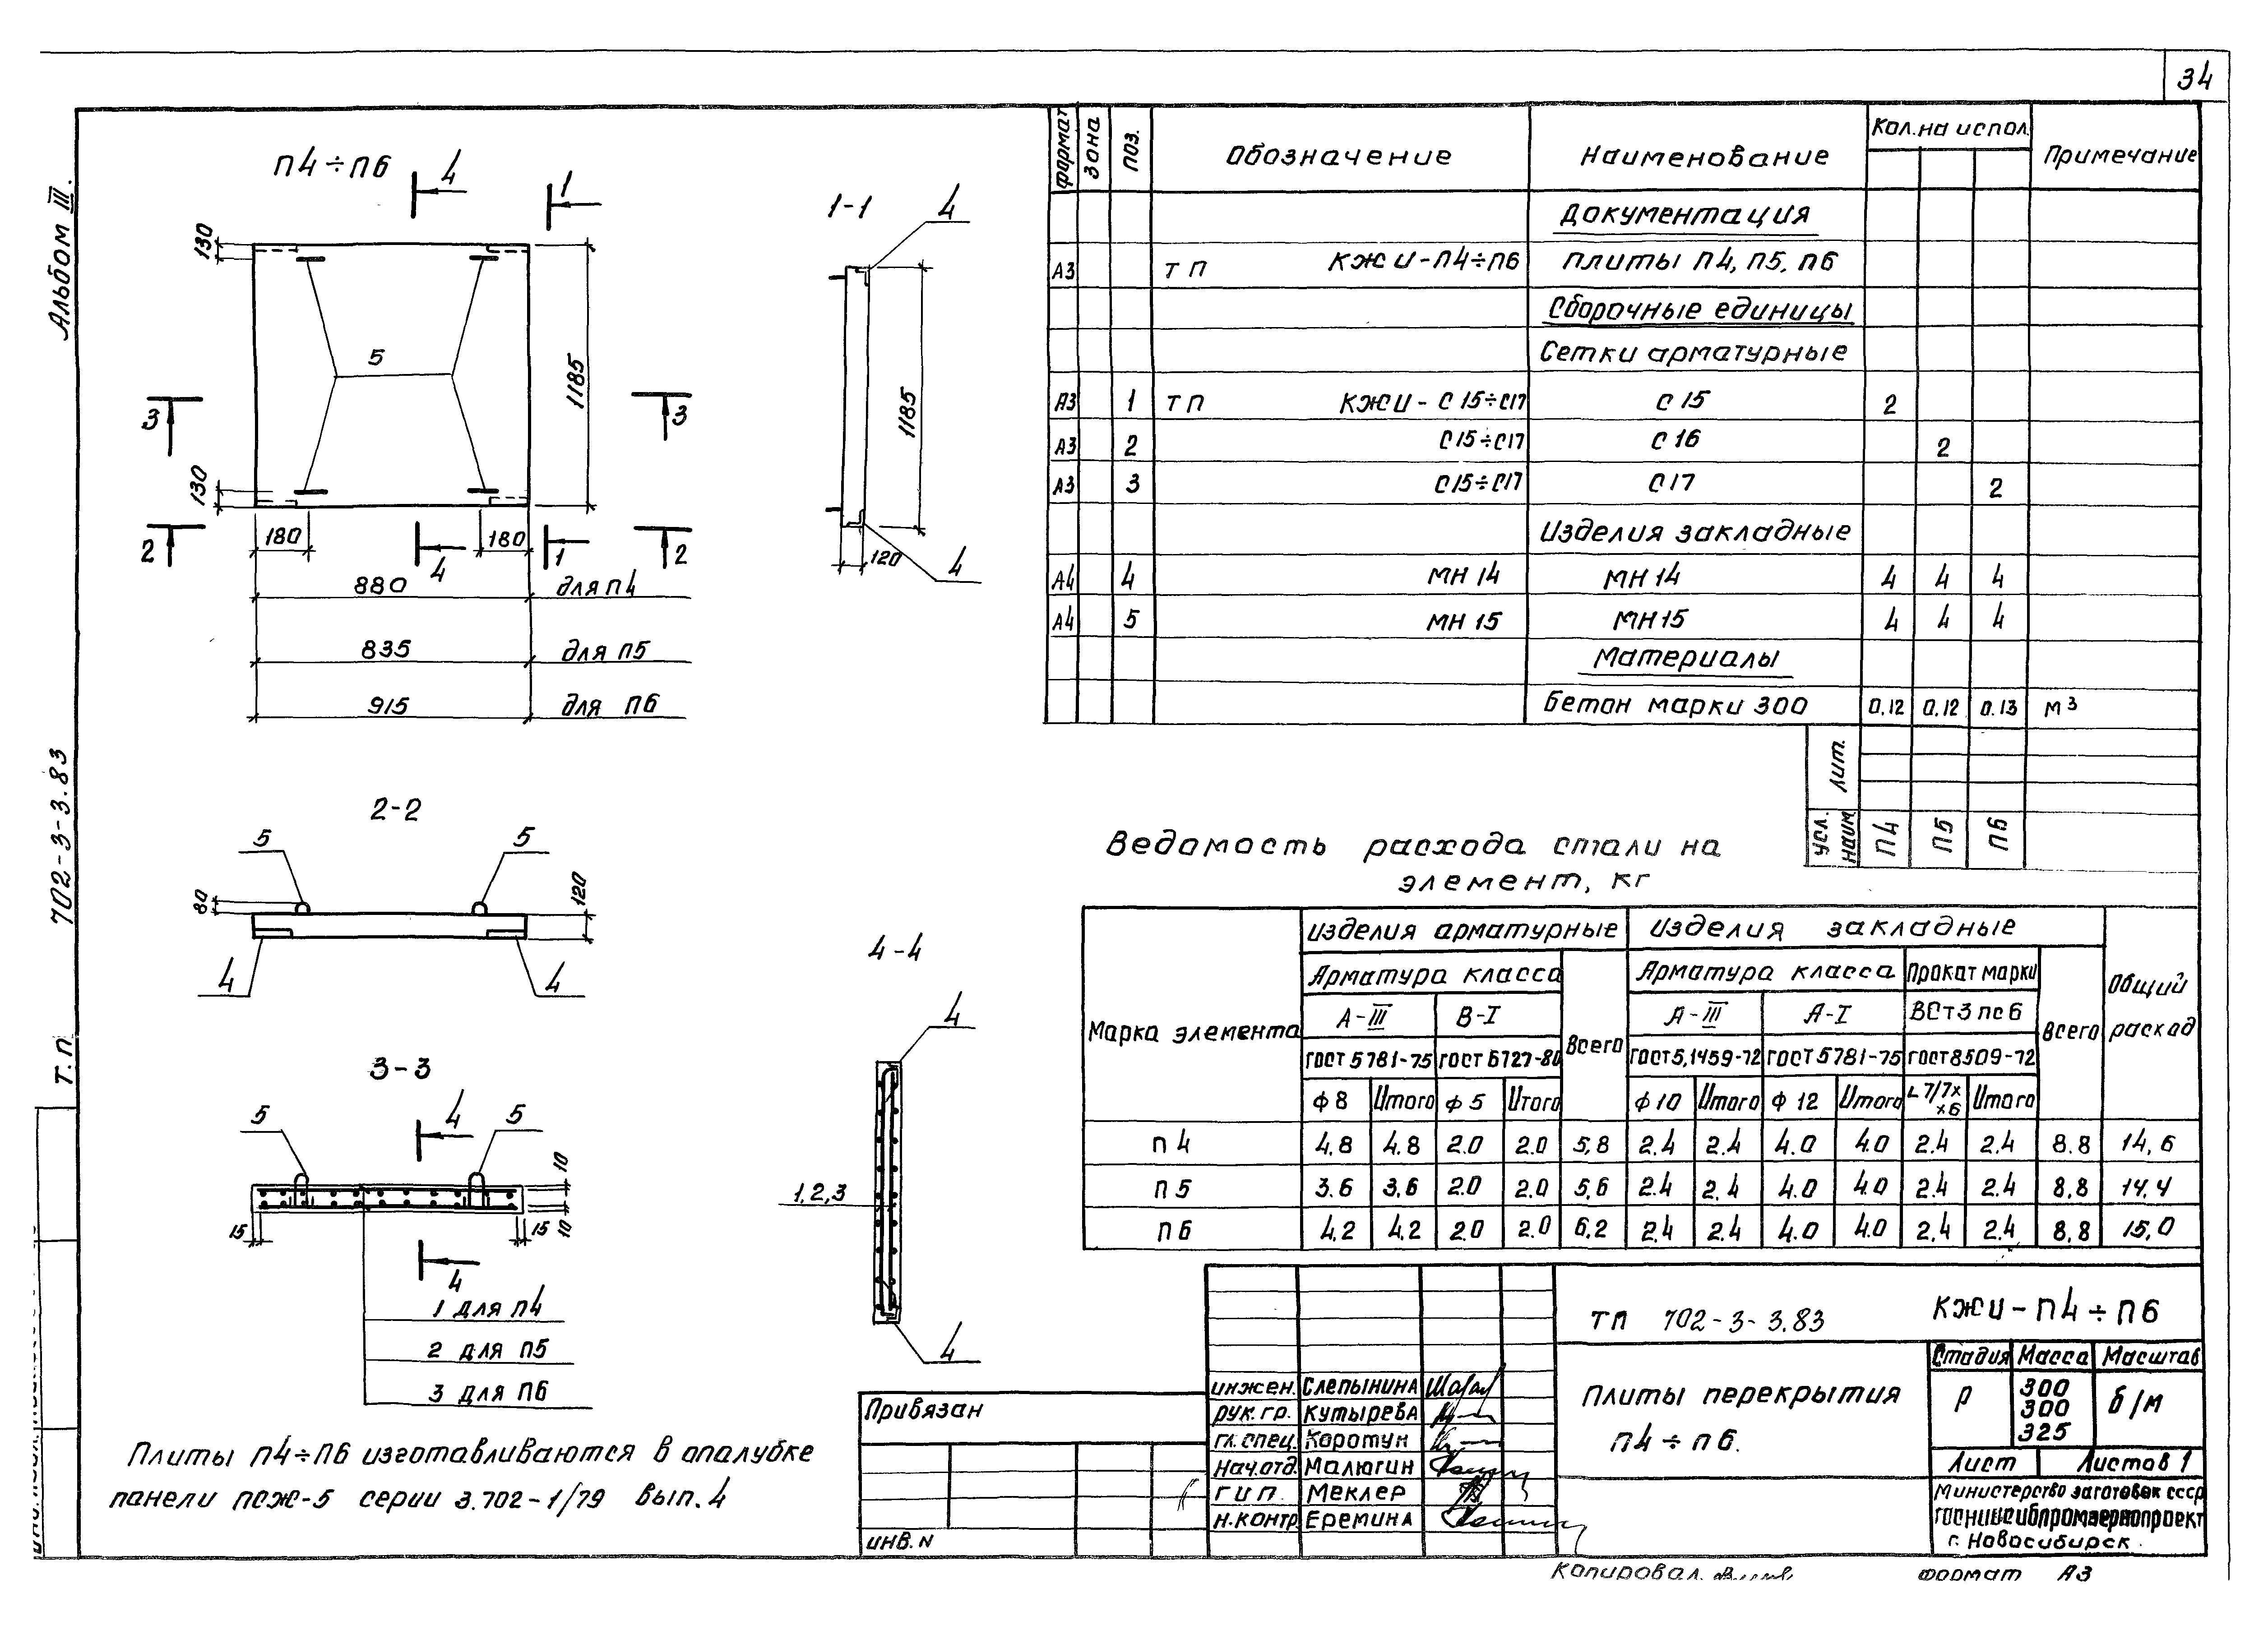 34
Альбом III.
Т.П. 702-3-3.83
П4÷П6
4
1
130
5
1185
3
3
130
2
180
4
180
1
2
880 для П4
835 для П5
915 для П6
1-1
4
1185
120
4
2-2
5
5
80
120
4
4
3-3
5
4
5
10
15
15
10
4
1 для П4
2 для П5
3 для П6
4-4
4
1,2,3
4
Плиты П4÷П6 изготавливаются в опалубке
панели ПСЖ-5 серии 3.702-1/79 вып. 4
формат Зона Поз. Обозначение Наименование Кол. на испол. Примечание
Документация
А3 ТП КЖИ-П4÷П6 Плиты П4, П5, П6
Сборочные единицы
Сетки арматурные
А3 1 ТП КЖИ- С15÷С17 С15 2
А3 2 С15÷С17 С16 2
А3 3 С15÷С17 С17 2
Изделия закладные
А4 4 МН14 МН14 4 4 4
А4 5 МН15 МН15 4 4 4
Материалы
Бетон марки 300 0.12 0.12 0.13 м3
Лит.
Усл. наим. П4 П5 П6
Ведомость расхода стали на
элемент, кг
Марка элемента
Изделия арматурные Изделия закладные
Арматура класса Всего Арматура класса Прокат марки Всего Общий расход
А-III В-I А-III А-I ВСт3пс6
ГОСТ 5781-75 ГОСТ 6727-80 ГОСТ 5.1459-72 ГОСТ 5781-75 ГОСТ 8509-72
ф8 Итого ф5 Итого ф10 Итого ф12 Итого L7/7х х6 Итого
П4 4,8 4,8 2.0 2.0 5,8 2.4 2.4 4.0 4.0 2.4 2.4 8.8 14,6
П5 3.6 3,6 2.0 2.0 5,6 2.4 2.4 4.0 4.0 2.4 2.4 8,8 14.4
П6 4.2 4,2 2.0 2.0 6,2 2.4 2.4 4.0 4.0 2.4 2.4 8,8 15,0
ТП 702-3-3.83 КЖИ-П4÷П6
Плиты перекрытия
П4÷П6.
Стадия Масса Масштаб
Р 300 300 325 б/м
Лист Листов 1
Министерство заготовок СССР
г. Новосибирск
инжен. Слепынина
рук. гр. Кутырева
гл. спец. Коротун
Нач. отд. Малюгин
ГИП Меклер
Н.контр. Еремина
Привязан
ИНВ. N
Копировал.
Формат А3